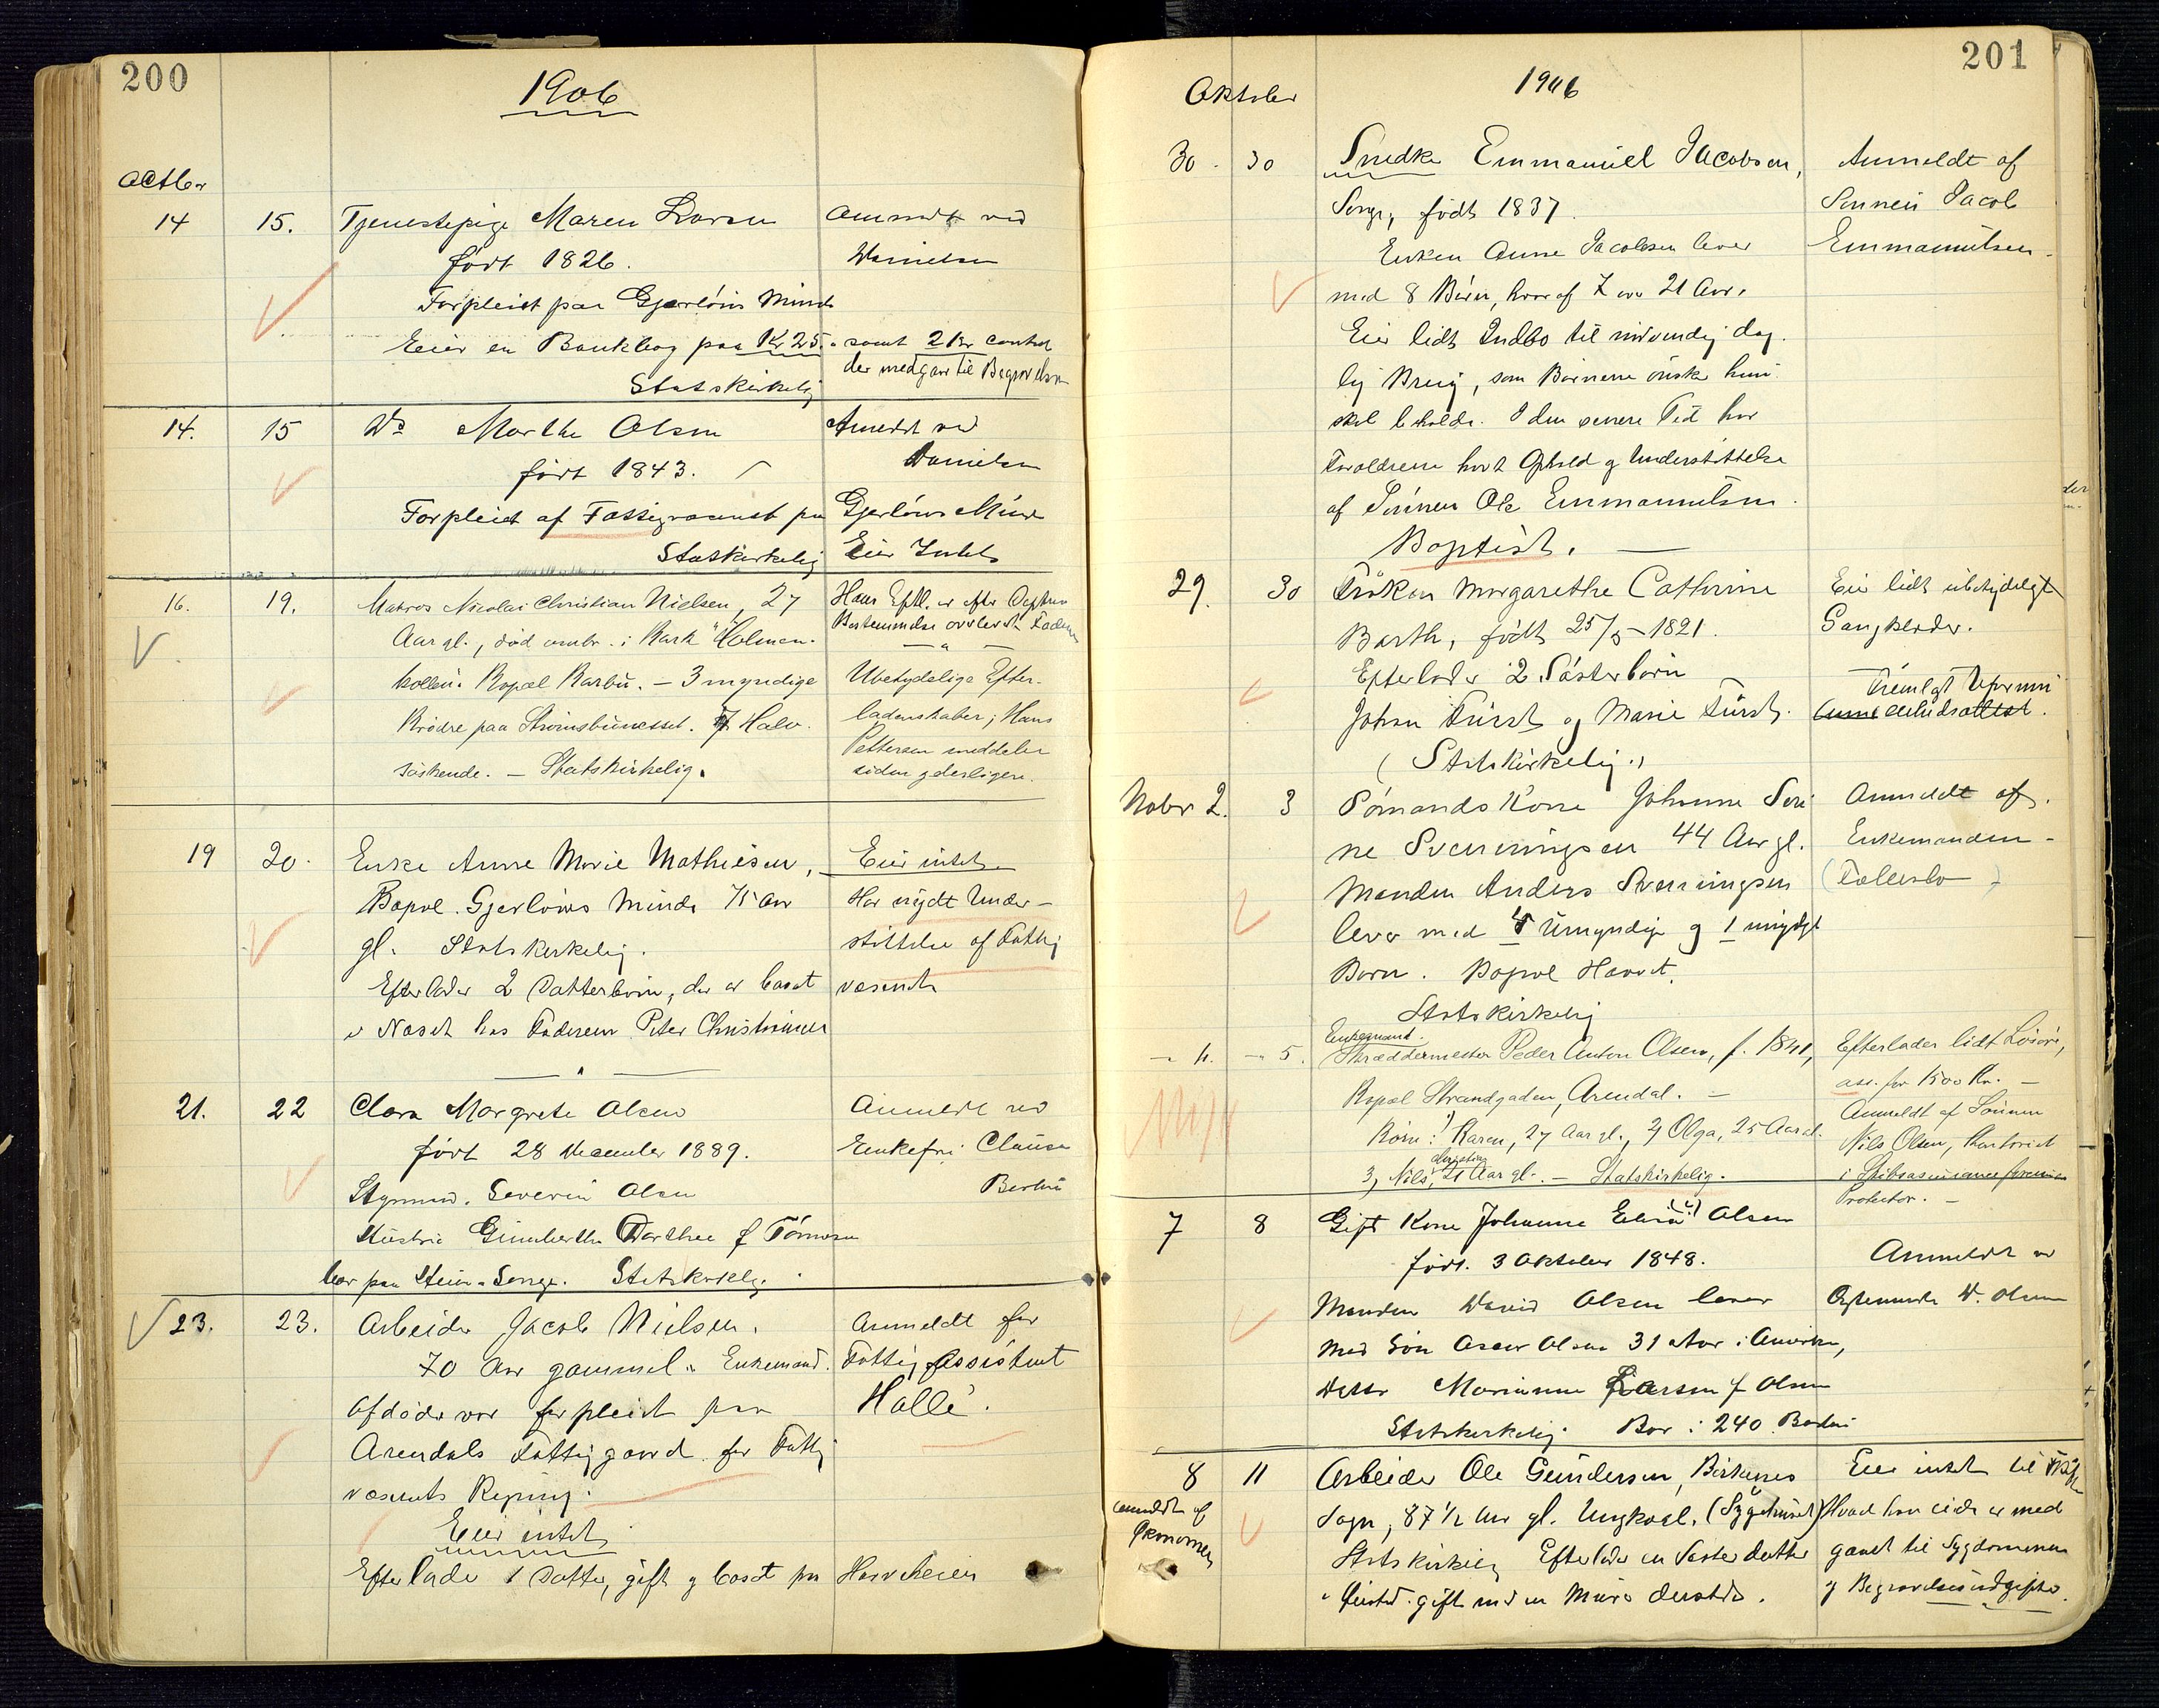 200
1906
Octbr
14 15. Tjenestepige Maren Larsen Anmeldt ved
født 1826. Danielsen
Forpleiet paa Gjerløws Minde
Eier en Bankbog paa Kr 25. samt 2 Kr contant
der medgaar til Begravelsen
Statskirkelig
14. 15 Do Marthe Olsen Anmeldt ved
født 1843. Danielsen
Forpleiet af Fattigvæsenet paa Gjerløws Minde
Statskirkelig Eier Intet
16. 19. Matros Nicolai Christian Nielsen, 27 Hans Eftl. er efter
Aar gl., død ombr. i Bark "Holmen- Bestemmelse overlevet Faderen
kollen". Bopæl Barbu. – 3 myndige Ubetydelige Efter-
Brødre paa Strømsbunesset. 7 Halv- ladenskaber; Hans
søskende. – Statskirkelig. Pettersen meddeler
siden yderligere.
19 20. Enke Anne Marie Mathiesen, Eier intet
Bopæl. Gjerløws Minde 75 Aar Har nydt Under-
gl. Statskirkelig. støttelse af Fattig
Efterlader 2 Datterbørn, der er bosat væsenet
i Næset hos Faderen Peter Christiansen
21. 22 Clara Margrete Olsen Anmeldt ved
født 28 December 1889. Enkefru Clausen
Styrmd. Severin Olsen Barbu
Hustru Gunberthe Dorthee f Tønnesen
bor paa Stein-Songe. Statskirklg.
23. 23. Arbeider Jacob Nielsen. Anmeldt for
70 Aar gammel. Enkemand. Fattig Assistent
Afdøde var forpleiet paa Halle.
Arendals Fattiggaard for Fattig
væsenets Regning.
Eier intet
Efterlader 1 Datter, gift og bosat paa Havveheien
201
Oktober 1906
30. 30 Snedker Emmanuel Jacobsen, Anmeldt af
Songe, født 1837. Sønnen Jacob
Enken Anne Jacobsen lever Emmanuelsen.
med 8 Børn, hvoraf 7 over 21 Aar.
Eier lidt Indbo til nødvendig dag-
lig Brug, som Børnene ønsker hun
skal beholde. I den senere Tid har
Forældrene havt Ophold og Understøttelse
af Sønnen Ole Emmanuelsen.
Baptist.
29. 30 Frøken Margarethe Cathrine Eier lidt ubetydeligt
Barth, født 25/5 – 1821. Gangklæder.
Efterlader 2 Søsterbørn
Johan Fürst og Marie Fürst.
(Statskirkelig.)
Novbr 2. 3 Sømands Kone Johanne Seri- Anmeldt af
ne Sveinungsen 44 Aar gl. Enkemanden
Manden Anders Sveinungsen
lever med 4 Umyndige og 1 myndigt
Børn. Bopæl Havet.
Statskirkelig
Enkemand.
– 4. – 5. Skræddermester Peder Anton Olsen, f. 1841, Efterlader lidt Løsøre,
Bopæl Strandgaden, Arendal. – ass. for 1500 Kr. –
Børn: 1) Karen, 27 Aar gl., 2) Olga, 25 Aar gl. Anmeldt af Sønnen
3) Nils, 21 Aar gl. – Statskirkelig. Nils Olsen, Kontorist
i Skibsassuranceforeningen
Protector. –
7 8 Gift Kone Johanne Elisa Olsen
født. 3 Oktober 1848. Anmeldt av
Manden David Olsen lever Ægtemanden D. Olsen
med Søn Oscar Olsen 31 Aar i Amerika,
Datter Marianne Larsen f Olsen
Statskirkelig. Bor i 240 Barbu
8 11 Arbeider Ole Gundersen, Birkenes Eier intet til
anmeldt af Økonomen Sogn, 87 1/2 Aar gl. Ungkarl. (Sygehuset) Hvad han eide er med
Statskirkelig Efterlader en Søsterdatter gaaet til Sygdommen
i Øiestad. gift med en Murer dersteds. og Begravelsesudgifter.